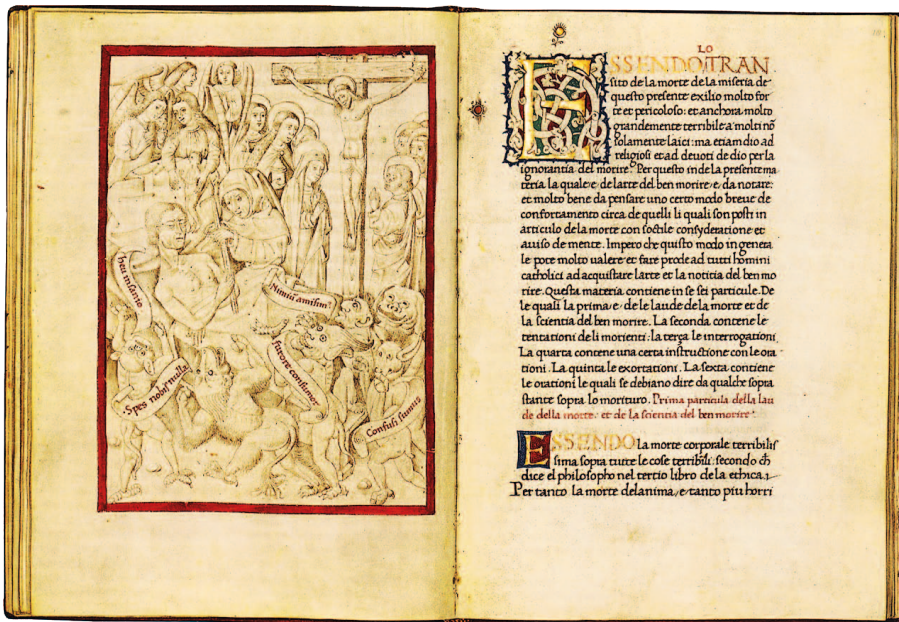 heu insanio
Spes nobis nulla
Animā amisim⁹
furore consumor
Confusi sumus
LO
ESSENDO TRAN
sito de la morte de la miseria de
questo presente exilio molto for
te et pericoloso: et anchora molto
grandemente terribile a molti nō
solamente laici: ma etiam dio ad
religiosi et ad deuoti de dio per la
ignorantia del morire. Per questo in de la presente ma
teria la quale e de larte del ben morire e da notare:
et molto bene da pensare uno certo modo breue de
confortamento circa de quelli li quali son posti in
articulo de la morte con sottile consyderatione et
auiso de mente. Impero che questo modo in genera
le pote molto ualere et fare prode ad tutti homini
catholici ad acquistare larte et la notitia del ben mo
rire. Questa materia contiene in se sei particule. De
le quali la prima e de le laude de la morte et de
la scientia del ben morire. La seconda contene le
tentationi de li morienti: la terça le interrogationi.
La quarta contene una certa instructione con le ora
tioni. La quinta le exortationi. La sexta contiene
le orationi le quali se debiano dire da qualche sopra
stante sopra lo morituro. Prima particula della lau
de della morte: et de la scientia del ben morire.
ESSENDO la morte corporale terribilis
sima sopra tutte le cose terribili: secondo ch̄
dice el philosopho nel tertio libro de la ethica:
Per tanto la morte delanima, e tanto piu horri